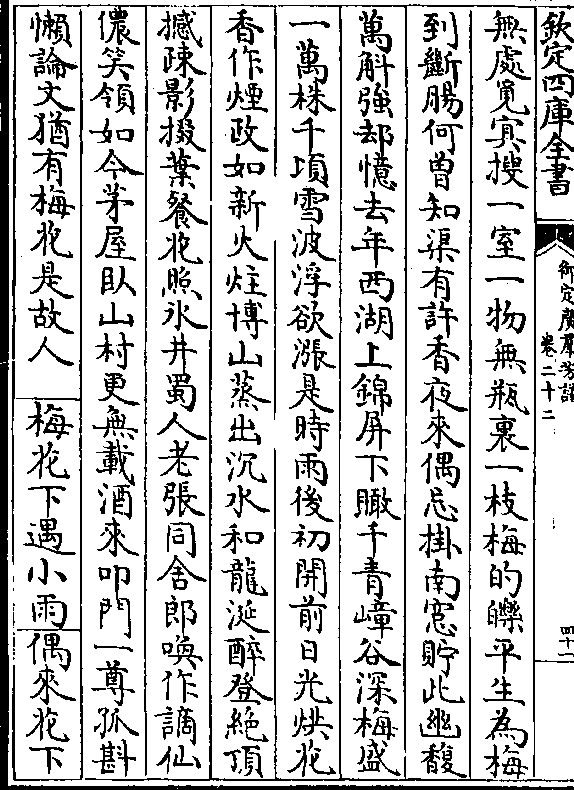 欽定四庫全書
御定廣羣芳譜
卷二十二
四十二
無處覓冥搜一室一物無瓶裏一枝梅的皪平生為梅
到斷腸何曾知渠有許香夜來偶忘掛南窓貯此幽馥
萬斛強却憶去年西湖上錦屏下瞰千青嶂谷深梅盛
一萬株千頃雪波浮欲漲是時雨後初開前日光烘花
香作煙政如新火炷博山蒸出沉水和龍涎醉登絶頂
撼疎影掇葉餐花照氷井蜀人老張同舍郎喚作謫仙
儂笑領如今茅屋臥山村更無載酒來叩門一尊孤斟
懶論文猶有梅花是故人　梅花下遇小雨偶來花下